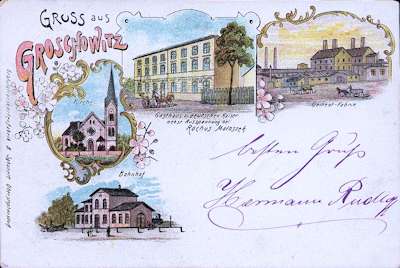 GRUSS aus
GROSCHOWITZ
Kirche
Gasthaus zum deutschen Kaiser
nebst Ausspannung bei
ROCHUS
Cement-Fabrik
Bahnhof
besten Gruß
Hermann